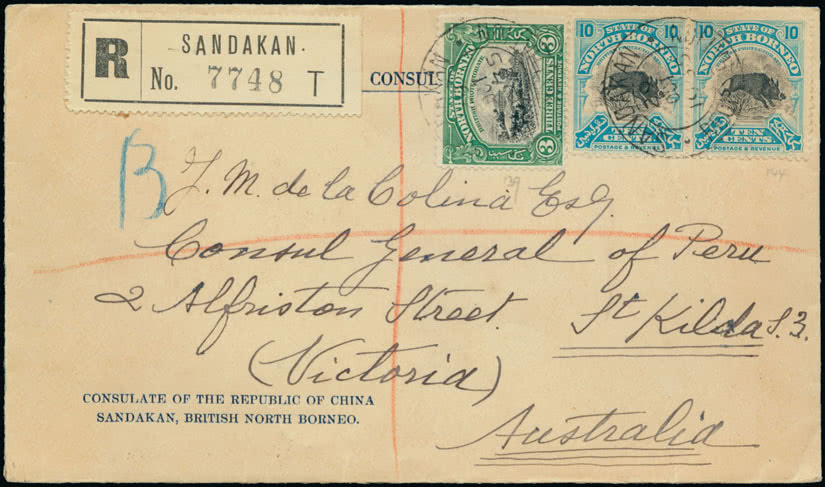 R
SANDAKAN.
No. 7748 T
CONSUL
NORTH BORNEO
THREE CENTS
POSTAGE & REVENUE
3
3
10
STATE OF
NORTH BORNEO
10
TEN
CENTS
POSTAGE & REVENUE
10
STATE OF
NORTH BORNEO
10
TEN
CENTS
POSTAGE & REVENUE
SANDAKAN
B
139
144
J. M. de la Colina Esq.
Consul General of Peru
2 Alfriston Street.
St Kilda S.3.
(Victoria)
Australia
CONSULATE OF THE REPUBLIC OF CHINA
SANDAKAN, BRITISH NORTH BORNEO.